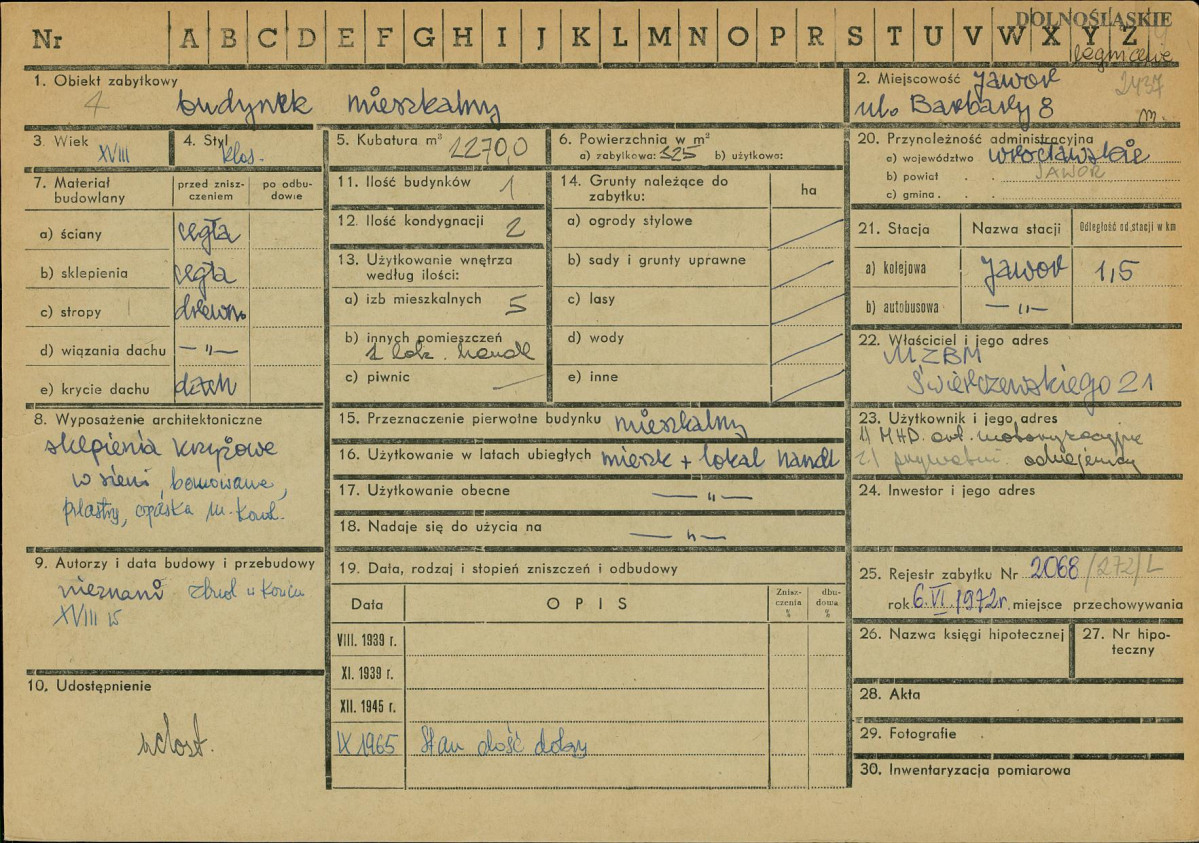 DOLNOŚLĄSKIE
Nr A B C D E F G H I J K L M N O P R S T U V W X Y Z
legnickie
1. Obiekt zabytkowy
4 budynek mieszkalny
2. Miejscowość Jawor 2437
ul. Barbary 8 m.
3. Wiek XVIII
4. Styl klas.
5. Kubatura m³ 2270,0
6. Powierzchnia w m²
a) zabytkowa: 325 b) użytkowa:
7. Materiał budowlany
przed zniszczeniem
po odbudowie
a) ściany cegła
b) sklepienia cegła
c) stropy drewn.
d) wiązania dachu —"—
e) krycie dachu dach
8. Wyposażenie architektoniczne
sklepienia krzyżowe
w sieni, boniowane,
pilastry, opaska m. kond.
9. Autorzy i data budowy i przebudowy
nieznani zbud w końcu
XVIII w
10. Udostępnienie
udost.
11. Ilość budynków 1
12. Ilość kondygnacji 2
13. Użytkowanie wnętrza według ilości:
a) izb mieszkalnych 5
b) innych pomieszczeń
1 lok. handl
c) piwnic —
14. Grunty należące do zabytku:
ha
a) ogrody stylowe
b) sady i grunty uprawne
c) lasy
d) wody
e) inne
15. Przeznaczenie pierwotne budynku mieszkalny
16. Użytkowanie w latach ubiegłych mieszk + lokal handl
17. Użytkowanie obecne —"—
18. Nadaje się do użycia na —"—
19. Data, rodzaj i stopień zniszczeń i odbudowy
Data OPIS Zniszczenia % dbudowa %
VIII. 1939 r.
XI. 1939 r.
XII. 1945 r.
IX 1965 Stan dość dobry
20. Przynależność administracyjna
a) województwo wrocławskie
b) powiat JAWOR
c) gmina
21. Stacja Nazwa stacji Odległość od stacji w km
a) kolejowa Jawor 1,5
b) autobusowa —"—
22. Właściciel i jego adres
MZBM
Świerczewskiego 21
23. Użytkownik i jego adres
1) MHD art. motoryzacyjne
2) prywatni odnajemcy
24. Inwestor i jego adres
25. Rejestr zabytku Nr 2068/272/L
rok 6 VI 1972r. miejsce przechowywania
26. Nazwa księgi hipotecznej
27. Nr hipoteczny
28. Akta
29. Fotografie
30. Inwentaryzacja pomiarowa